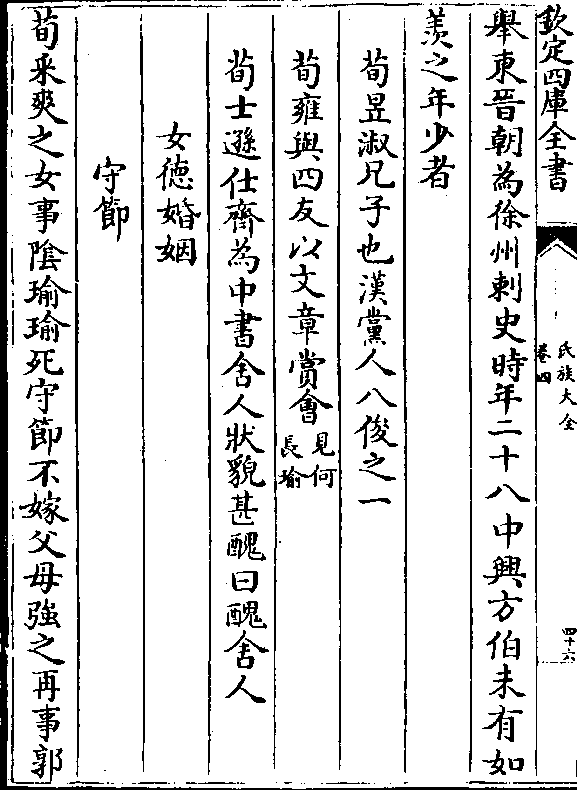 欽定四庫全書
氏族大全
卷四
四十六
舉東晉朝為徐州刺史時年二十八中興方伯未有如
羨之年少者
荀昱淑兄子也漢黨人八俊之一
荀雍與四友以文章賞會見何
長瑜
荀士遜仕齊為中書舍人狀貌甚醜曰醜舍人
女徳婚姻
守節
荀采爽之女事陰瑜瑜死守節不嫁父母強之再事郭